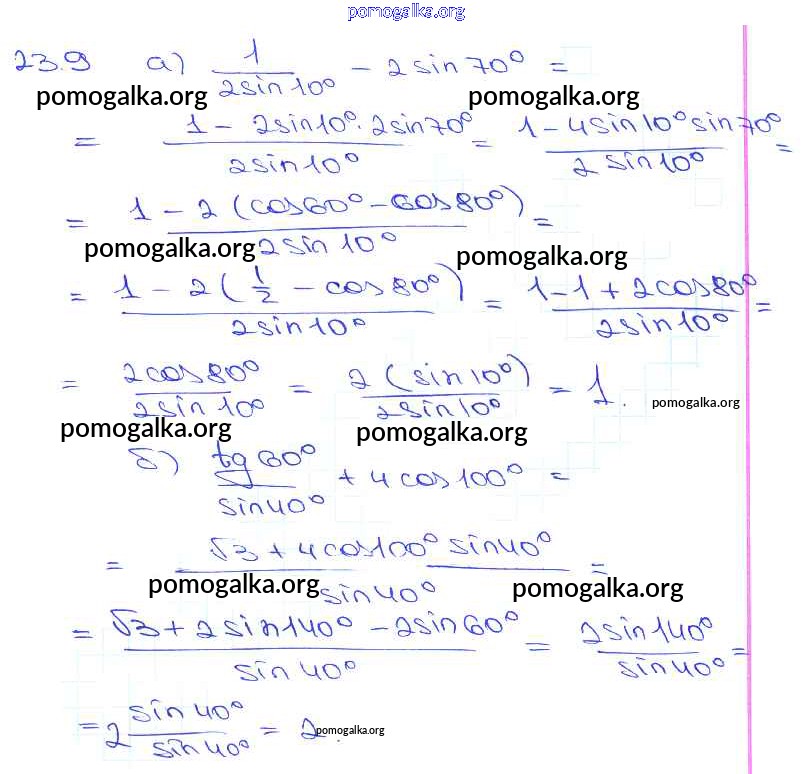 pomogalka.org
23.9 а) 1/(2sin10°) - 2sin70° =
pomogalka.org pomogalka.org
= (1 - 2sin10°·2sin70°)/(2sin10°) = (1-4sin10°sin70°)/(2sin10°) =
= (1 - 2(cos60° - cos80°))/(2sin10°) =
pomogalka.org pomogalka.org
= (1 - 2(1/2 - cos80°))/(2sin10°) = (1-1+2cos80°)/(2sin10°) =
= (2cos80°)/(2sin10°) = (2(sin10°))/(2sin10°) = 1.
pomogalka.org
pomogalka.org pomogalka.org
б) tg60°/sin40° + 4cos100° =
= (√3 + 4cos100° sin40°)/(sin40°) =
pomogalka.org pomogalka.org
= (√3 + 2sin140° - 2sin60°)/(sin40°) = (2sin140°)/(sin40°) =
= 2 sin40°/sin40° = 2.
pomogalka.org